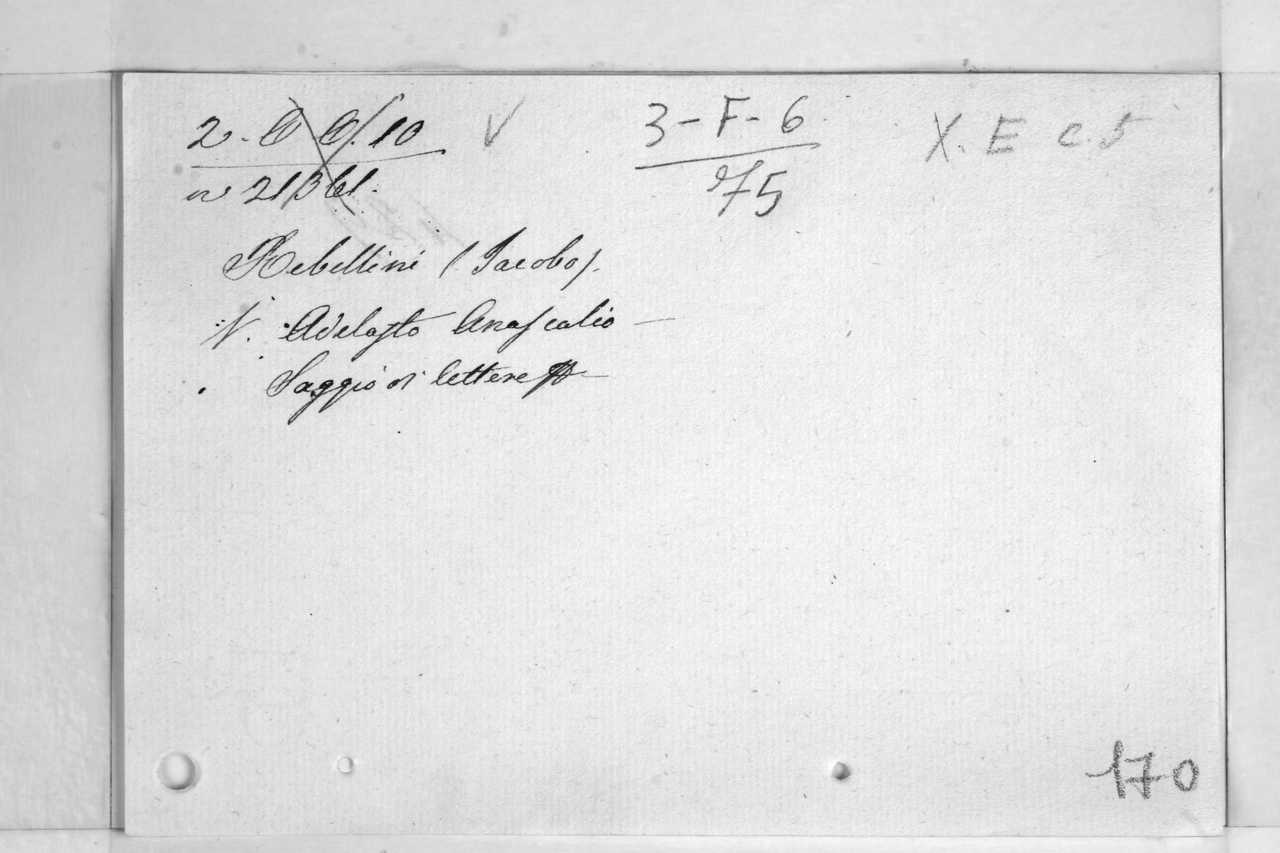 3-F-6
75
X. E c. 5
Rebellini (Jacobo).
V. Adelasto Anascalio —
Saggio di lettere
170